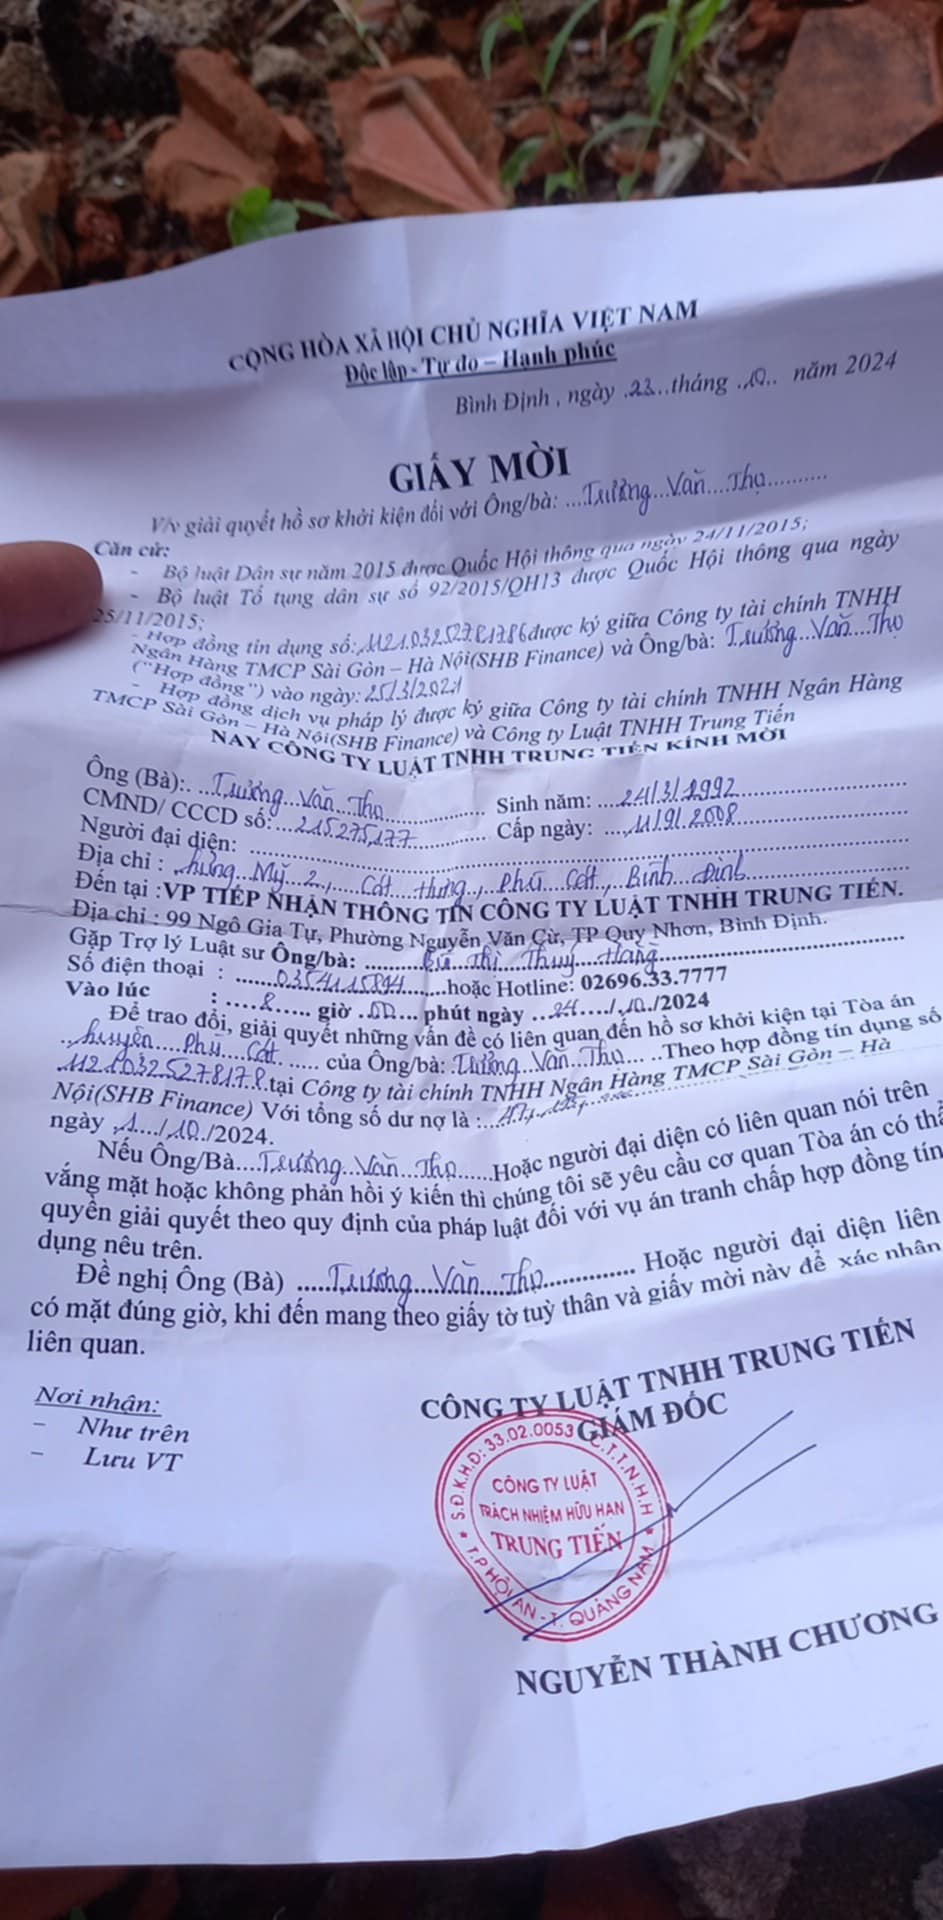 CỘNG HÒA XÃ HỘI CHỦ NGHĨA VIỆT NAM
Độc lập - Tự do – Hạnh phúc
Bình Định , ngày .23...tháng .10.. năm 2024
GIẤY MỜI
V/v giải quyết hồ sơ khởi kiện đối với Ông/bà: ....Trương...Văn...Thọ..........
Căn cứ:
- Bộ luật Dân sự năm 2015 được Quốc Hội thông qua ngày 24/11/2015;
- Bộ luật Tố tụng dân sự số 92/2015/QH13 được Quốc Hội thông qua ngày
25/11/2015;
- Hợp đồng tín dụng số: được ký giữa Công ty tài chính TNHH
Ngân Hàng TMCP Sài Gòn – Hà Nội(SHB Finance) và Ông/bà: Trương...Văn...Thọ
("Hợp đồng") vào ngày: 25/3/2021
- Hợp đồng dịch vụ pháp lý được ký giữa Công ty tài chính TNHH Ngân Hàng
TMCP Sài Gòn – Hà Nội(SHB Finance) và Công ty Luật TNHH Trung Tiến
NAY CÔNG TY LUẬT TNHH TRUNG TIẾN KÍNH MỜI
Ông (Bà):. ..Trương...Văn...Thọ............ Sinh năm: ....24/3/1992
CMND/ CCCD số:...215275177 Cấp ngày: ....11/9/2008
Người đại diện:
Địa chỉ : Hưng...Mỹ 2,....Cát...Hưng., Phù Cát., Bình...Định
Đến tại :VP TIẾP NHẬN THÔNG TIN CÔNG TY LUẬT TNHH TRUNG TIẾN.
Địa chỉ : 99 Ngô Gia Tự, Phường Nguyễn Văn Cừ, TP Quy Nhơn, Bình Định.
Gặp Trợ lý Luật sư Ông/bà: Thị...Thuý...Hằng
Số điện thoại : hoặc Hotline: 02696.33.7777
Vào lúc : .....8...... giờ .00... phút ngày ...24..../.10../2024
Để trao đổi, giải quyết những vấn đề có liên quan đến hồ sơ khởi kiện tại Tòa án
..huyện....Phù....Cát. ..... của Ông/bà: Trương...Văn...Thọ.... ..Theo hợp đồng tín dụng số
.11210325278178.tại Công ty tài chính TNHH Ngân Hàng TMCP Sài Gòn – Hà
Nội(SHB Finance) Với tổng số dư nợ là :
ngày .1..../.10./2024.
Nếu Ông/Bà....Trương...Văn...Thọ......Hoặc người đại diện có liên quan nói trên
vắng mặt hoặc không phản hồi ý kiến thì chúng tôi sẽ yêu cầu cơ quan Tòa án có
quyền giải quyết theo quy định của pháp luật đối với vụ án tranh chấp hợp đồng tín
dụng nêu trên.
Đề nghị Ông (Bà) .....Trương...Văn...Thọ.............. Hoặc người đại diện liên
có mặt đúng giờ, khi đến mang theo giấy tờ tuỳ thân và giấy mời này để xác nhân
liên quan.
Nơi nhận:
- Như trên
- Lưu VT
CÔNG TY LUẬT TNHH TRUNG TIẾN
GIÁM ĐỐC
S.Đ.K.H.Đ: 33.02.0053 C.T.T.N.H.H
CÔNG TY LUẬT
TRÁCH NHIỆM HỮU HẠN
TRUNG TIẾN
T.P HỘI AN - T. QUẢNG NAM
NGUYỄN THÀNH CHƯƠNG